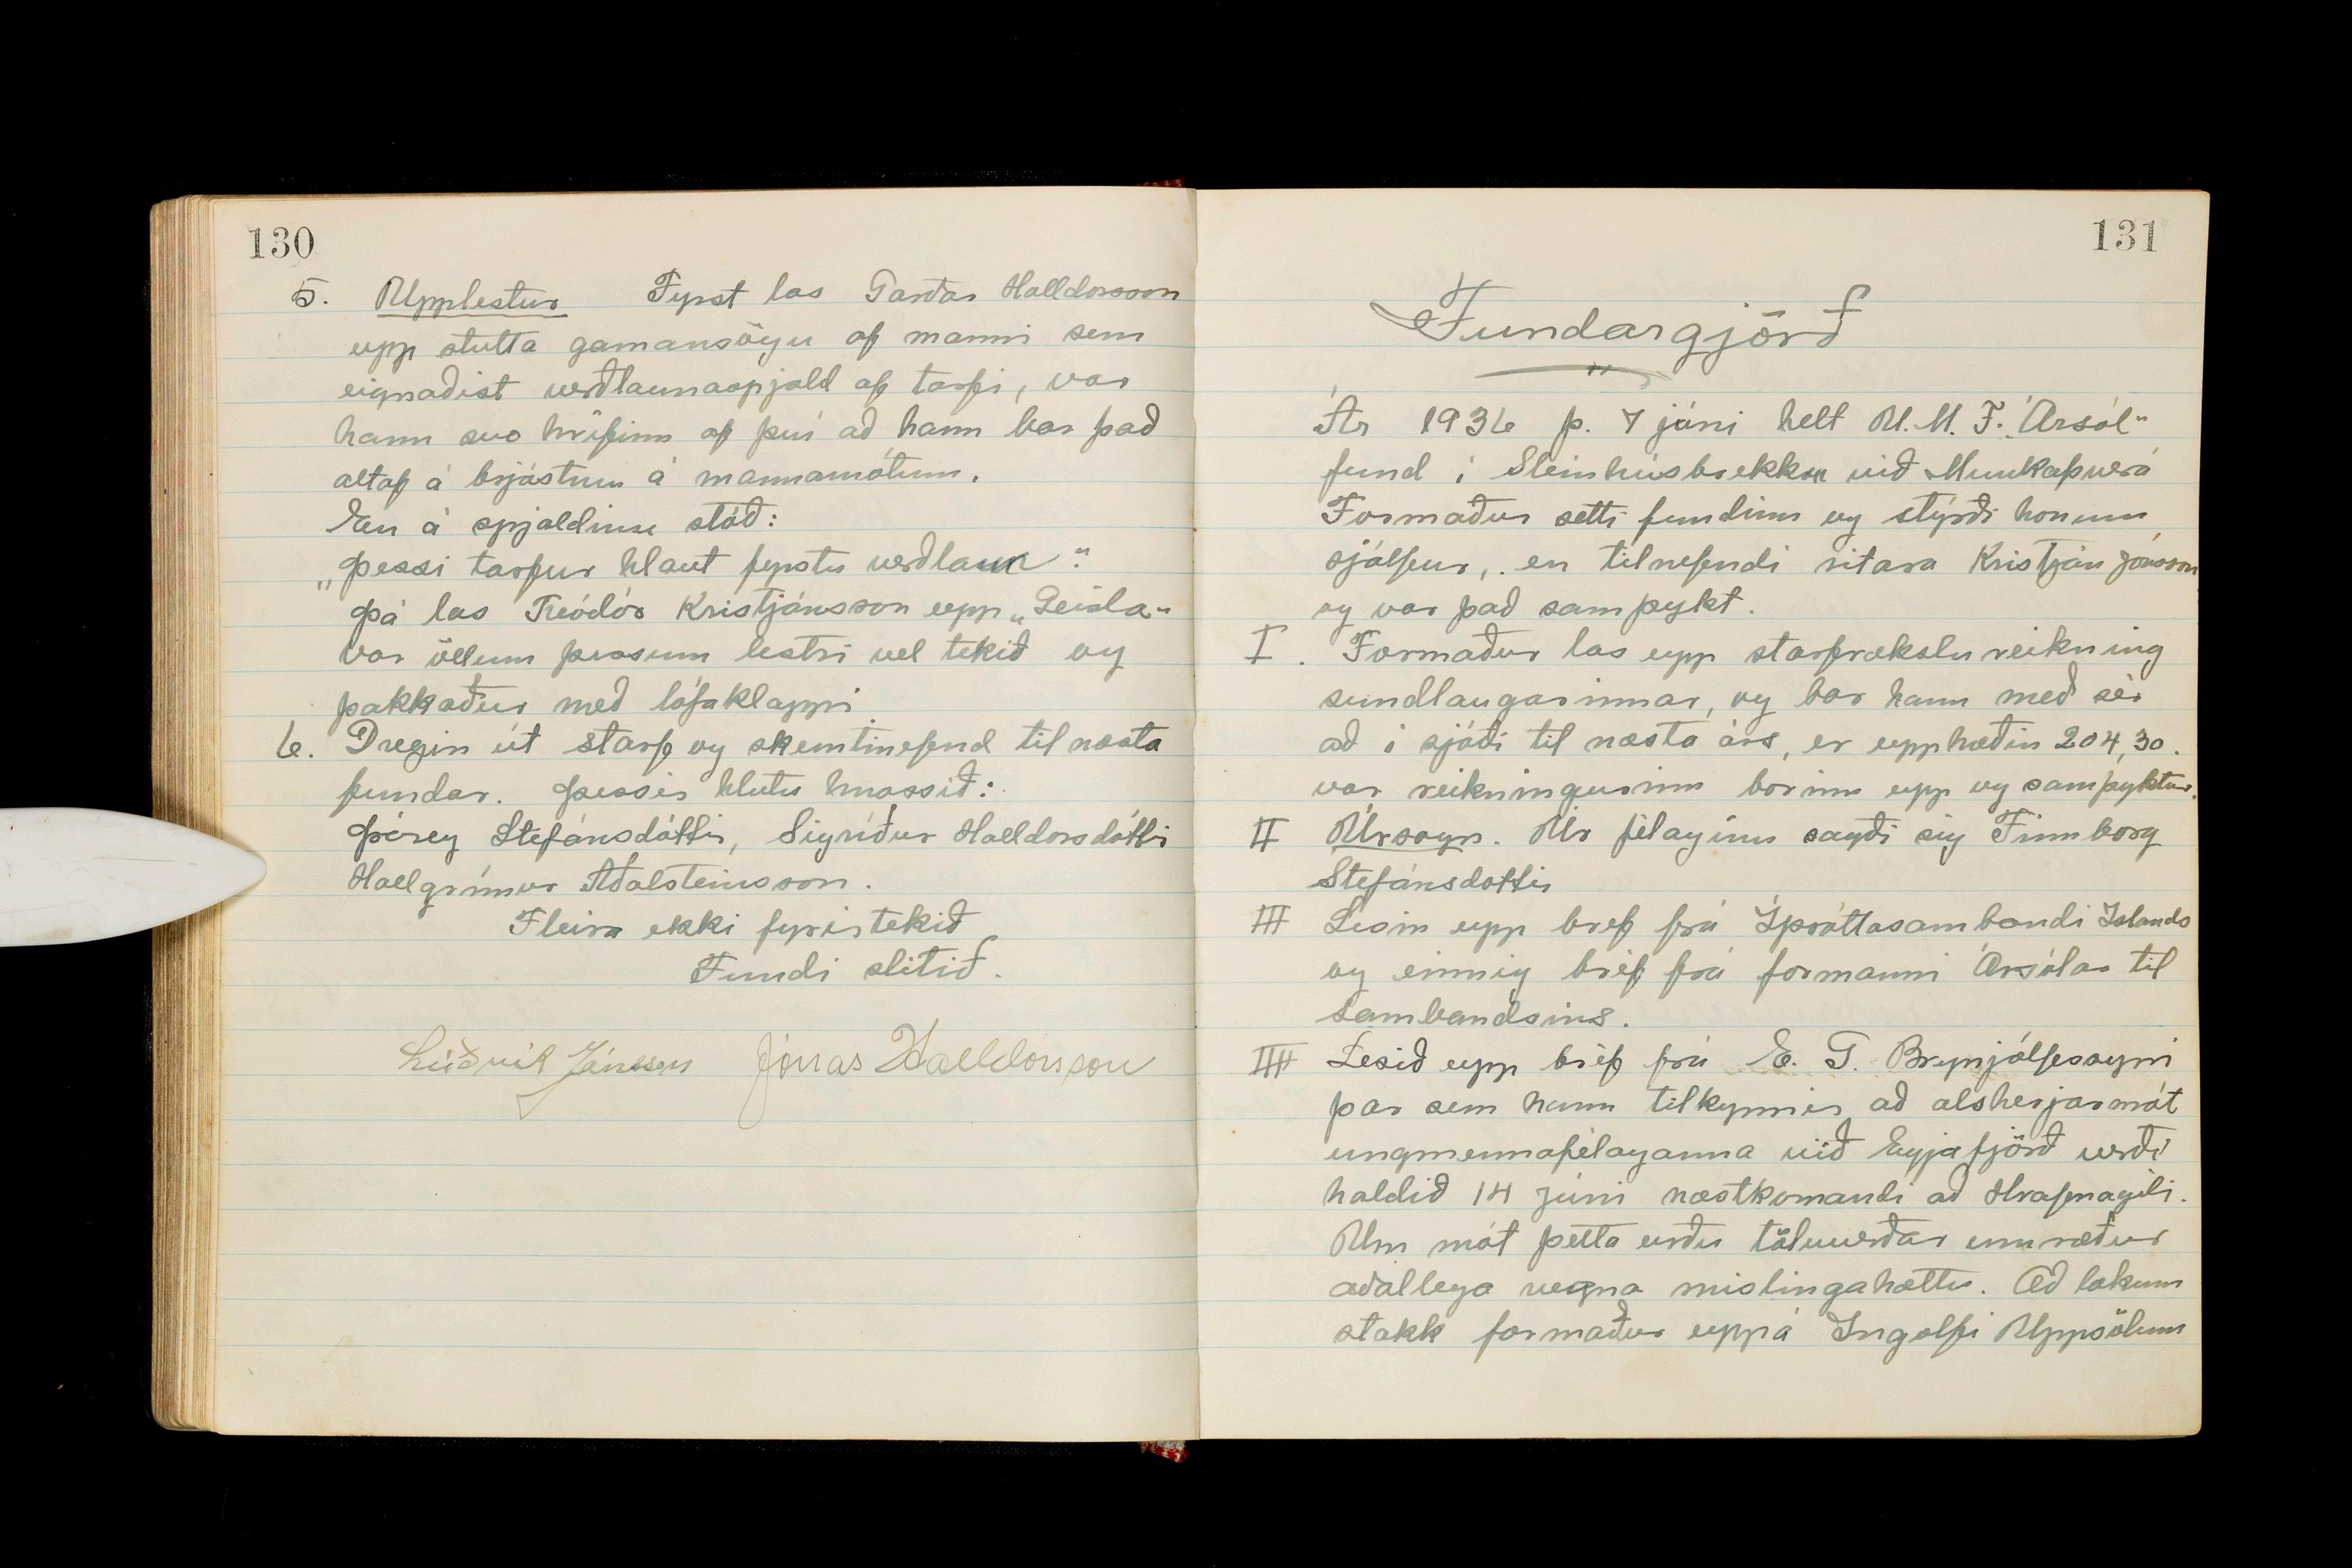 130
5. Upplestur Fyrst las Garðar Halldorsson
upp stutta gamansögu af manni sem
eignaðist verðlaunaspjald af tarfi, var
hann svo hrifinn af því að hann bar það
altaf á brjóstum á mannamótum.
En á spjaldinu stóð:
„Þessi tarfur hlaut fyrstu verðlaun“.
Þá las Theódór Kristjánsson upp „Geisla“
var öllum þessum lestri vel tekið og
þakkaður með lófaklappi
6. Dregin út starf og skemtinefnd til næsta
fundar. Þessir hlutu hnossið:
Þórey Stefánsdóttir, Sigríður Halldorsdóttir
Hallgrímur Aðalsteinsson.
Fleira ekki fyrirtekið
Fundi slitið.
Lúðvík Jónsson Jónas Halldórsson
131
Fundargjörð
Ár 1936 þ. 7 júni helt U.M.F. „Ársól“
fund í Steinhúsbrekku við Munkaþverá
Formaður setti fundinn og stýrði honum
sjálfur, en tilnefndi ritara Kristján Jónsson
og var það samþykt.
I. Formaður las upp starfrækslureikning
sundlaugarinnar, og bar hann með sér
að í sjóði til næsta árs, er upphæðin 204,30.
var reikningurinn borinn upp og samþyktur.
II Úrsögn. Úr félaginu sagði sig Finnborg
Stefánsdottir
III Lesin upp bref frá Íþróttasambandi Islands
og einnig bréf frá formanni Ársólar til
Sambandsins.
IIII Lesið upp bréf frá E. G. Brynjólfssyni
þar sem hann tilkynnir að alsherjarmót
ungmennafélaganna við Eyjafjörð verði
haldið 14 júni næstkomandi að Hrafnagili.
Um mót þetta urðu töluverðar umræður
aðallega vegna mislingahættu. Að lokum
stakk formaður uppá Ingolfi Uppsölum